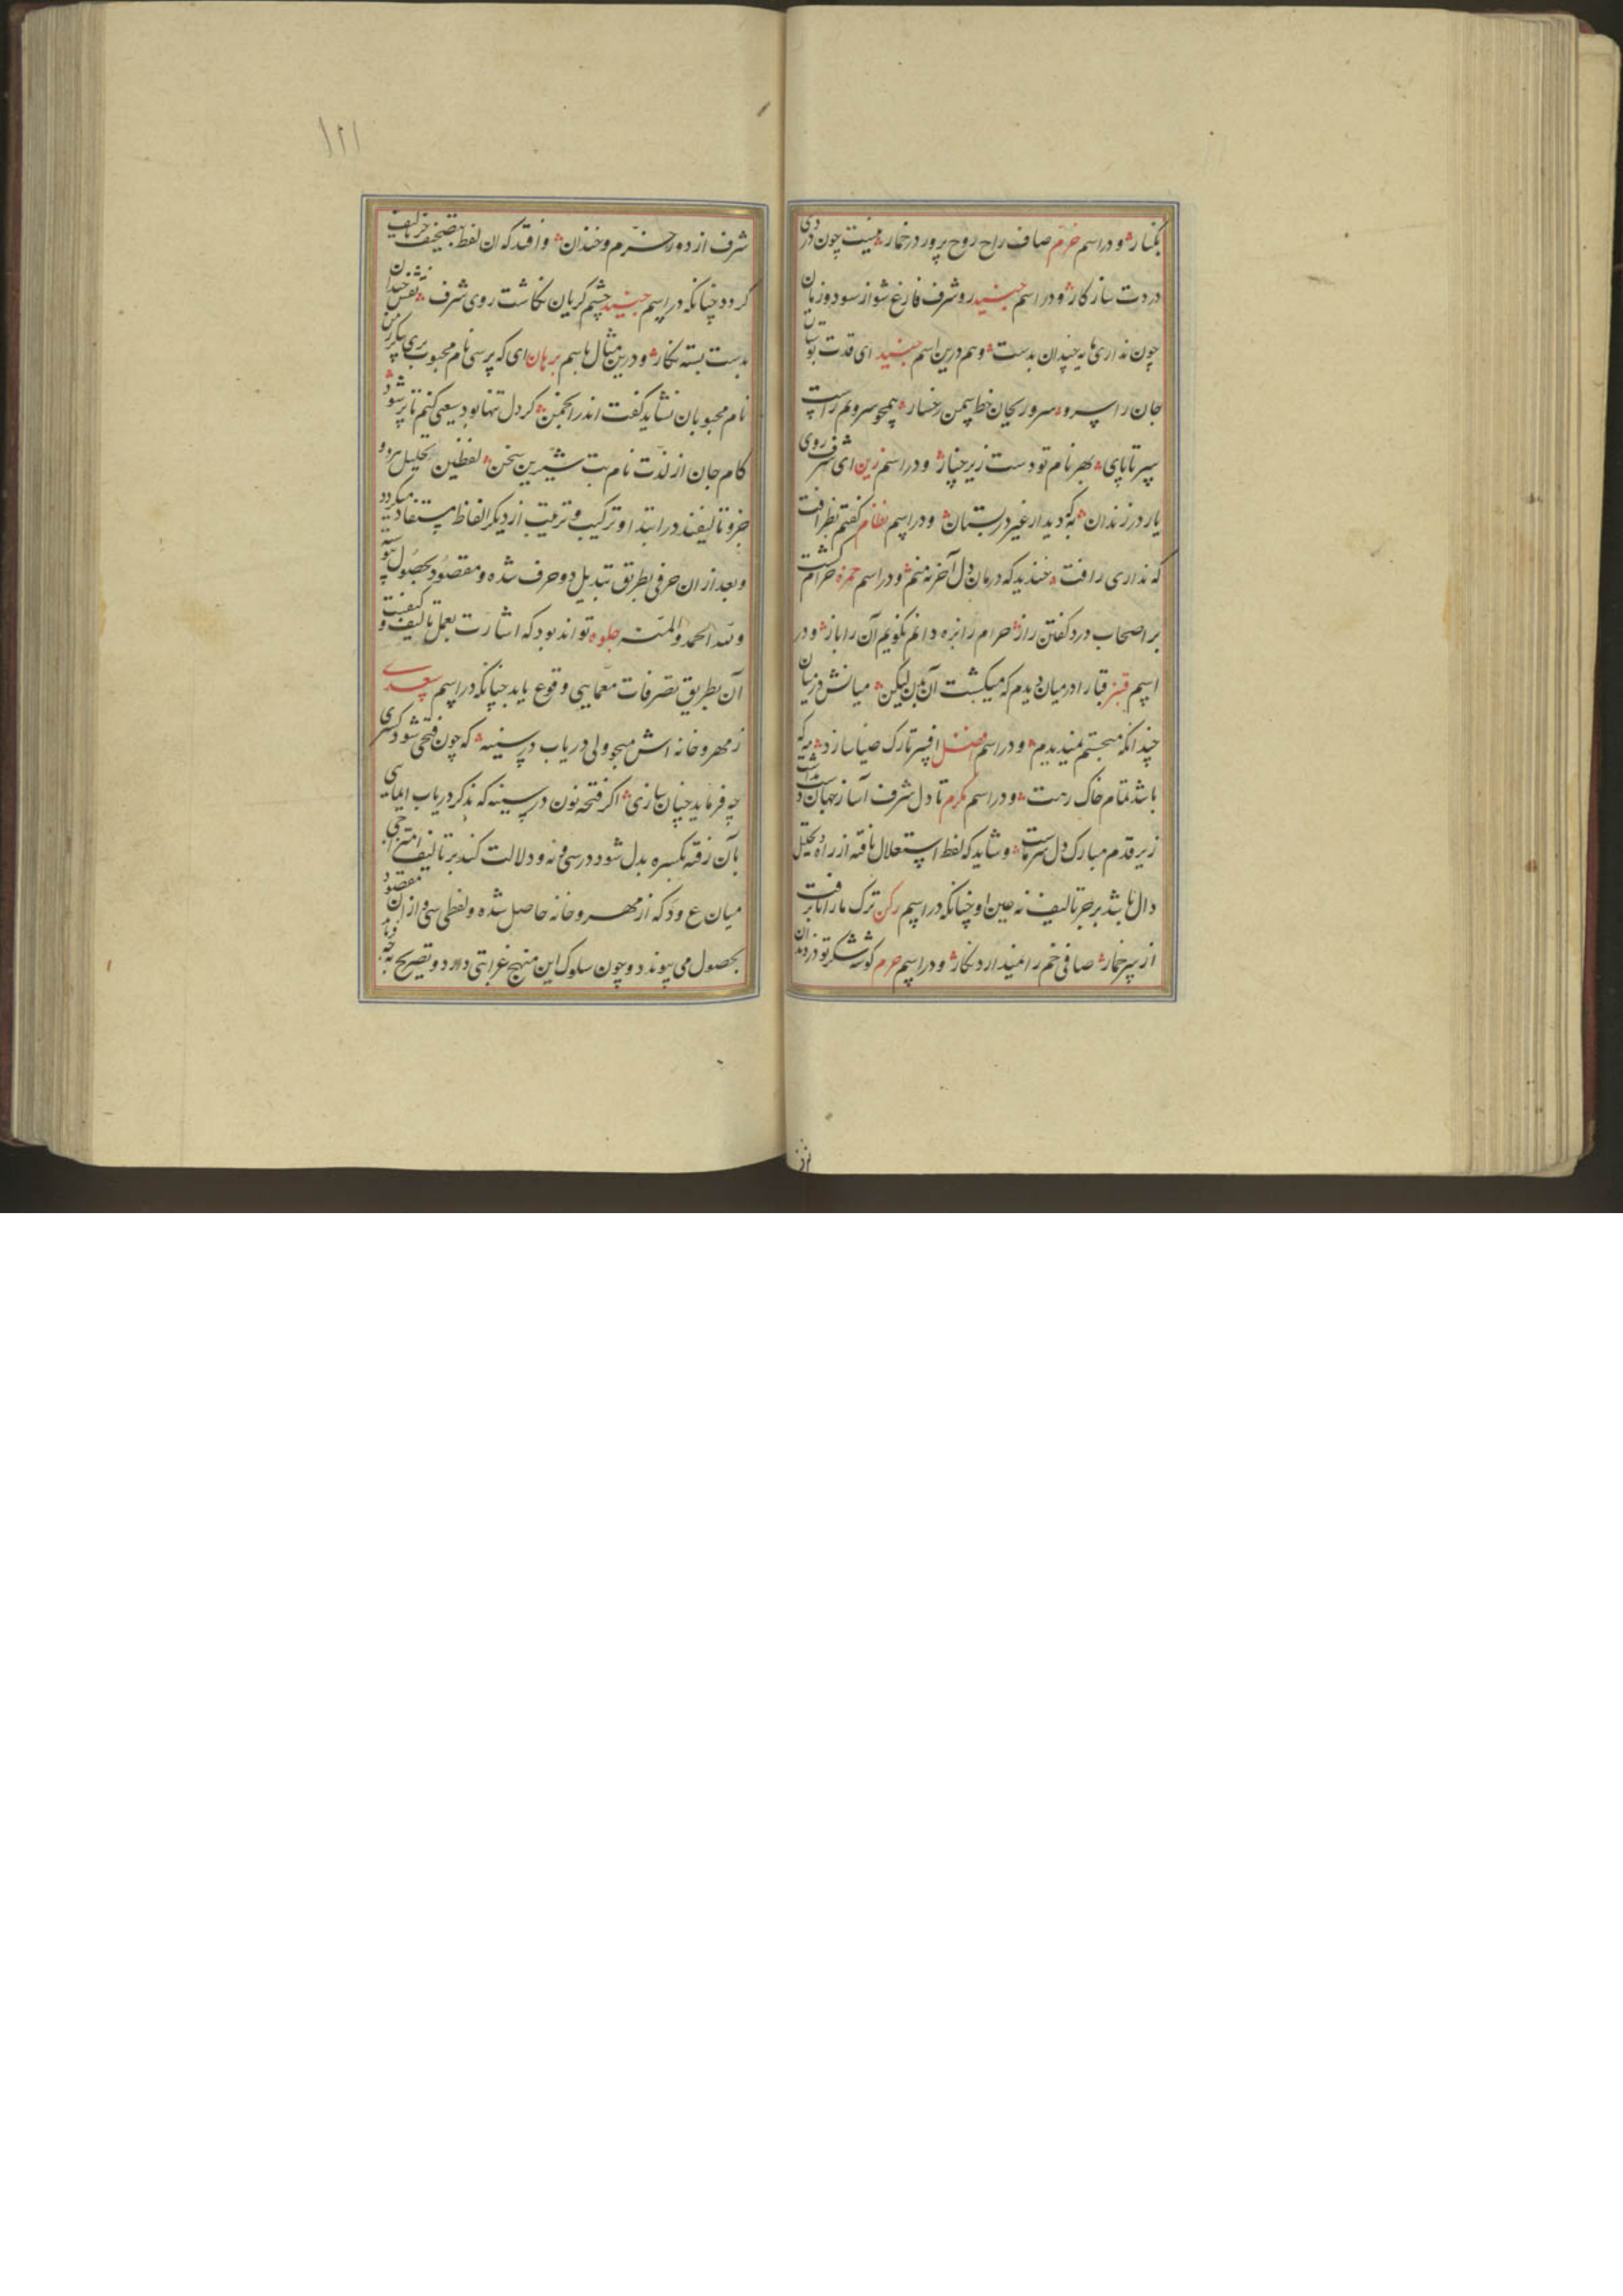 بکنار و در اسم خرم صاف راح روح پرور در خمار نیست چون دردی
دردت سازکار و در اسم جنید رو شرف فارغ شو از سود و زیان
چون نداری مایه چندان بدست و هم درین اسم جنید ای قدت بوستان
جان را سرو سرو ریحان خط سمن رخسار همچو سروم راست
سر تا پای بهر نام تو دست زیر چنار و در اسم زین ای شرف روی
یار در زندان به که دیدار غیر در بستان و در اسم نظام گفتم نظر افت
که نداری رافت خندید که درمان دل آخر نه منم و در اسم حمزه حرام گشت
بر اصحاب درد گفتن راز حرام را نزه دانم نگویم آن را باز و در
اسم قنبر قبا را در میان دیدم که میگشت آن بدن لیکن میانش در میان
چندانکه میجستم نمیدیدم و در اسم افضل افسر تارک ضیا سازد مه که
باشد تمام خاک رهت و در اسم مکرم تا دل شرف آسا ز جهان داشت
زیر قدم مبارک دل سر ماست و شاید که لفظ استعلال یافته از راه تحلیل
دال باشد بر جز تالیف نه عین او چنانکه در اسم رکن ترک ما را تا برفت
از سر خمار صافی خم را نمیدارد نکار و در اسم خرم گوشه شکر تو در دندان
۱۲۱
شرف از دور خرم و خندان و افتد که آن لفظ بتصحیف جز تالیف
گردد چنانکه در اسم جنید چشم گریان نکاشت روی شرف نقش خندان
بدست بسته نکار و درین مثال باسم برهان ای که پرسی نام محبوب پری پیکر ز من
نام محبوبان نشاید گفت اندر انجمن گر دل تنها بود سعی کنم تا پر شود
کام جان از لذت نام بت شیرین سخن لفظین تحلیل هر دو
جزو تالیفند در ابتدا و ترکیب و ترتیب از دیگر الفاظ مستفاد میگردد
و بعد از ان حرفی بطریق تبدیل دو حرف شده و مقصود بحصول پیوسته
ولله الحمد والمنه جلوه تواند بود که اشارت بعمل تالیف و کیفیت
آن بطریق تصرفات معمایی وقوع یابد چنانکه در اسم سعدی
ز مهر و خانه اش میجو ولی دریاب در سینه که چون فتحی شود کسری
چه فرماید چنان سازی اگر فتحه نون در سینه که بذکر دریاب ایمایی
بآن رفته بکسره بدل شود درسی و نه و دلالت کند بر تالیف امتزاجی
میان ع و د که از مهر و خانه حاصل شده و لفظ سی و ازان مقصود
بحصول می پیوندد و چون سلوک این منهج غرابتی دارد و تصریح به